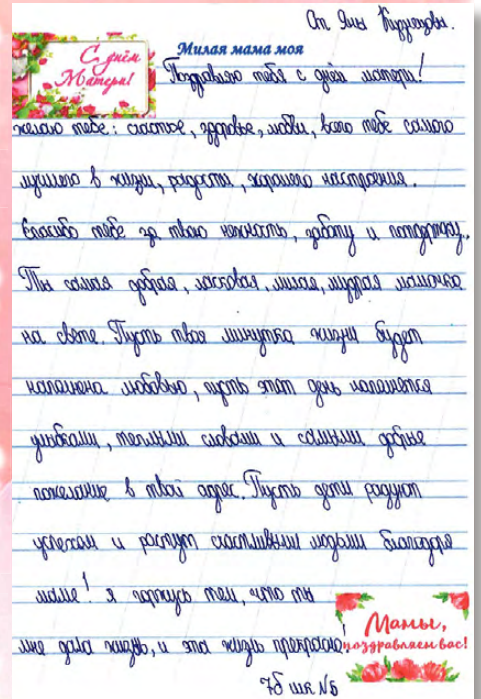 От Яны Кузнецовой.
С днём
Матери!
Милая мама моя
Поздравляю тебя с днём матери!
желаю тебе: счастье, здоровье, любви, всего тебе самого
лучшего в жизни, радости, хорошего настроения.
Спасибо тебе за твою нежность, заботу и поддержку.
Ты самая добрая, ласковая, милая, мудрая мамочка
на свете. Пусть твоя минутка жизни будет
наполнена любовью, пусть этот день наполнется
улыбками, теплыми словами и самыми добрые
пожелание в твой адрес. Пусть дети радуют
успехом и растут счастливыми людьми благодаря
маме! я горжусь тем, что ты
мне дала жизнь, и эта жизнь прекрасна!
Мамы,
поздравляем вас!
7б шк №5